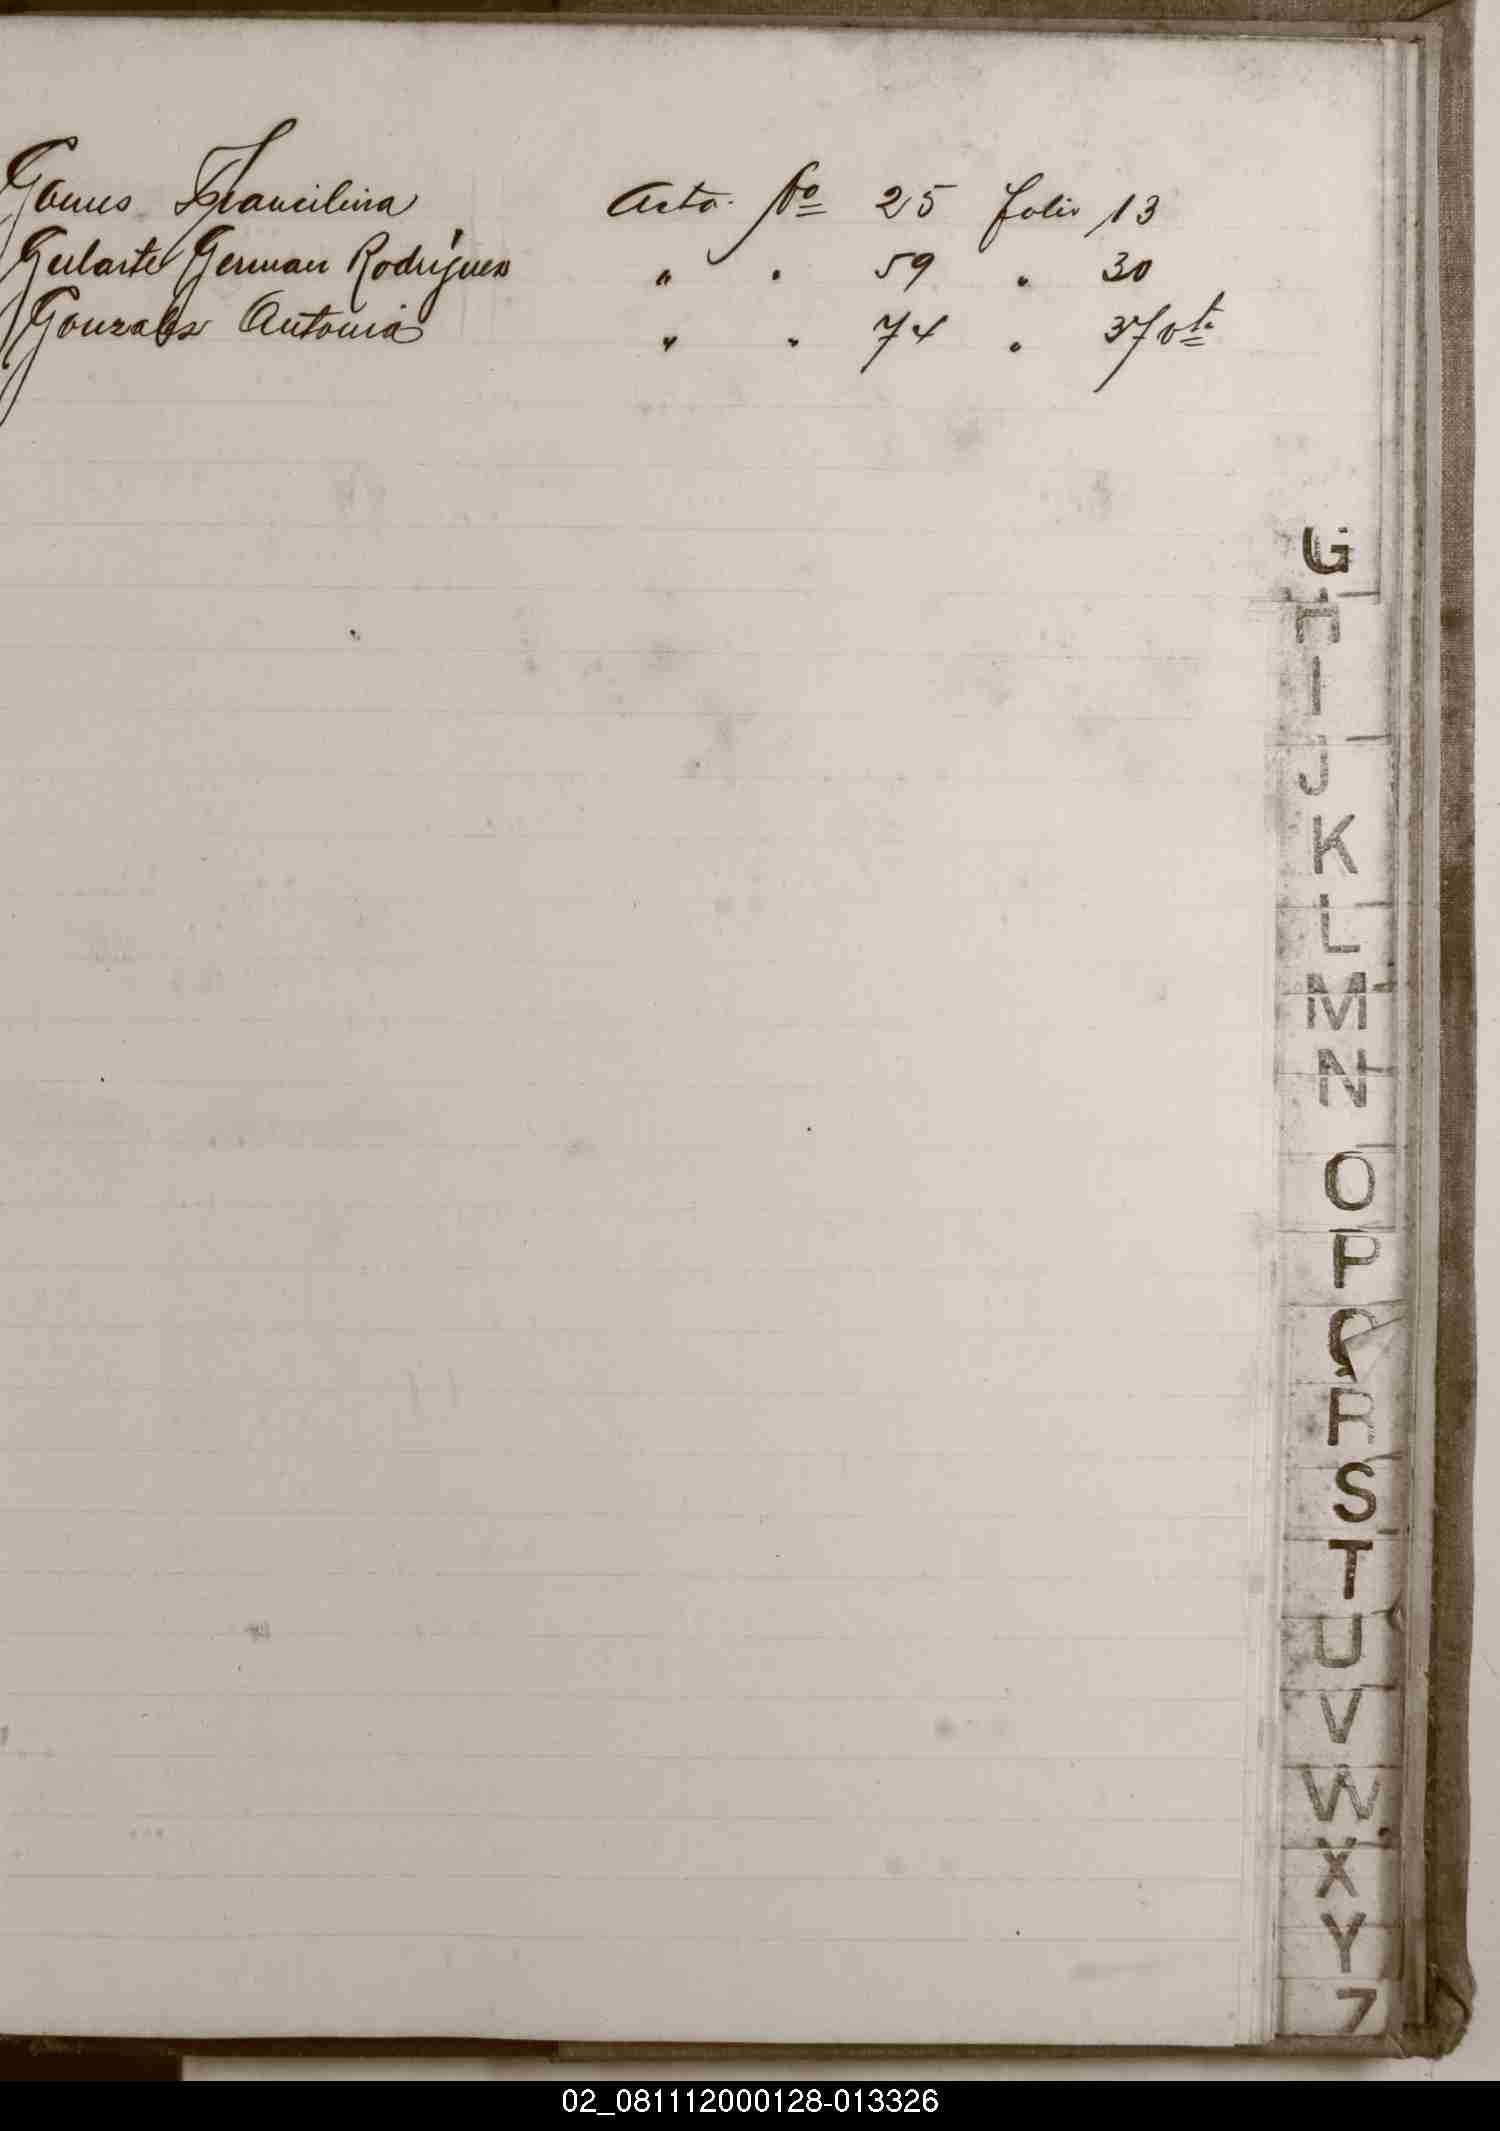 Gomes Francilina Acta. No 25 folio 13
Gularte German Rodrígues " " 59 " 30
Gonzalez Antonia " " 74 " 37 vta
G
H
I
J
K
L
M
N
O
P
Q
R
S
T
U
V
W
X
Y
Z
02_081112000128-013326